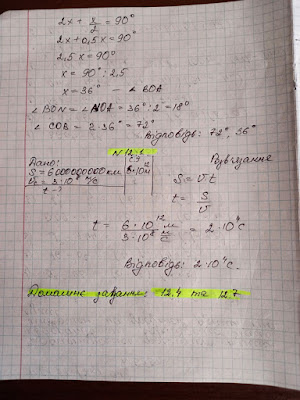 2x + x/2 = 90°
2x + 0,5x = 90°
2,5x = 90°
x = 90° : 2,5
x = 36° - ∠BOA
∠BON = ∠NOA = 36° : 2 = 18°
∠COB = 2·36° = 72°
Відповідь: 72°, 36°
N 12.6
Дано:
S = 6000000000 км
v = 3·10⁸ м/с
t - ?
СІ
6·10¹² м
Розв'язання
S = vt
t = S/v
t = 6·10¹² м / 3·10⁸ м/с = 2·10⁴ с
Відповідь: 2·10⁴ с
Домашнє завдання: 12.4 та 12.7